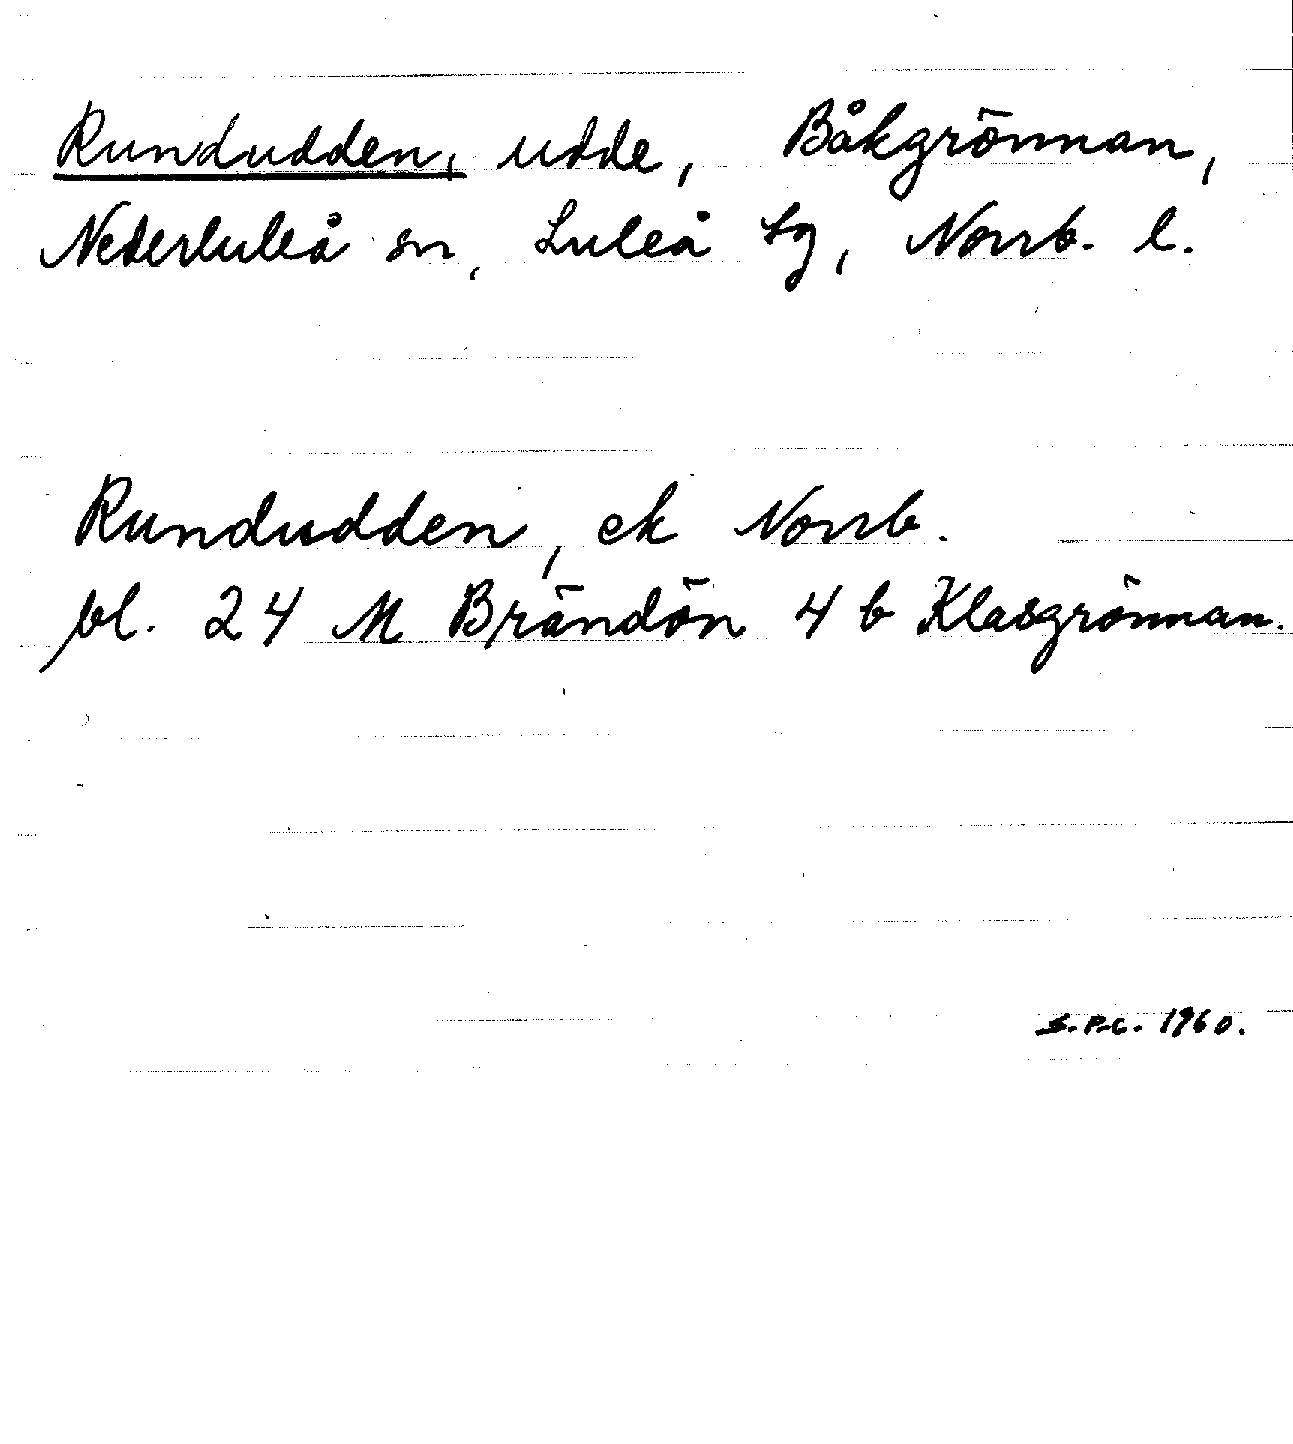 Rundudden, udde, Båkgrönnan,
Nederluleå sn, Luleå tg, Norrb. l.
Rundudden, ek Norrb.
bl. 24 M Brändön 4 b Klasgrönnan.
S.P.C. 1960.